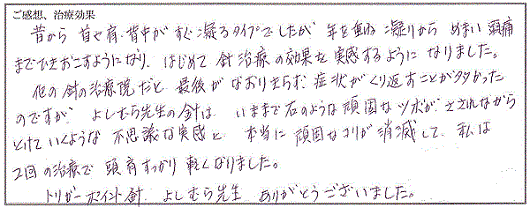 ご感想、治療効果
昔から 首や肩・背中が すぐ凝るタイプでしたが 年を重ね 凝りから めまい 頭痛
までひきおこすようになり、はじめて 針治療の効果を 実感するように なりました。
他の針の治療院だと 最後が なおりきらず 症状が くり返すことが多かった
のですが、よしむら先生の針は いままで石のような 頑固な ツボが さされながら
とけていくような 不思議な実感と 本当に 頑固なコリが 消滅して、私は
2回の治療で 頭肩すっかり 軽くなりました。
トリガーポイント針 よしむら先生 ありがとうございました。